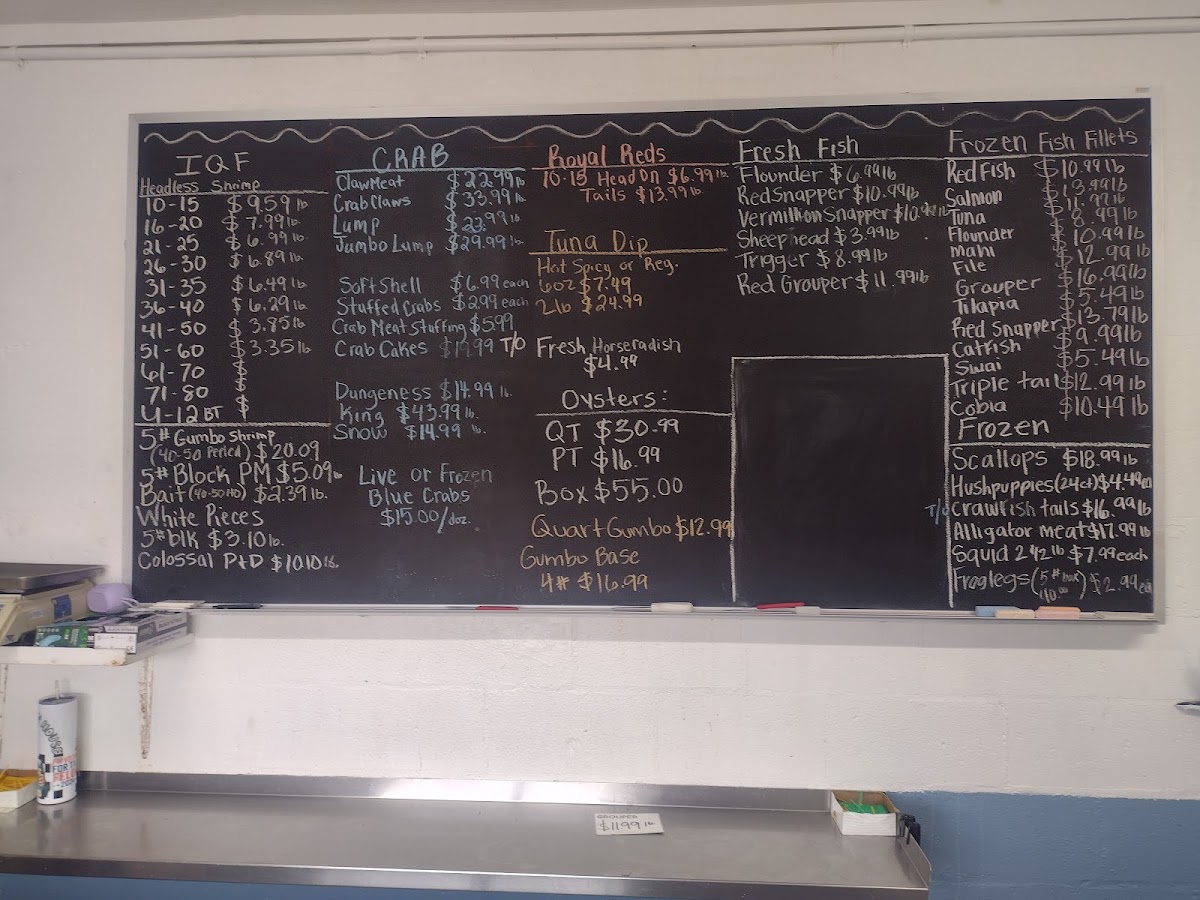 IQF
Headless Shrimp
10-15 $9.59 lb
16-20 $7.99 lb
21-25 $6.99 lb
26-30 $6.89 lb.
31-35 $6.49 lb
36-40 $6.29 lb.
41-50 $3.85 lb
51-60 $3.35 lb
61-70 $
71-80 $
U-12 BT $
5# Gumbo Shrimp
(40-50 Peeled) $20.09
5# Block PM $5.09 lb
Bait (40-50 HD) $2.39 lb.
White Pieces
5# blk $3.10 lb.
Colossal P+D $10.10 lb.
CRAB
Claw Meat $22.99 lb
Crab Claws $33.99 lb
Lump $23.99 lb
Jumbo Lump $29.99 lb.
Soft Shell $6.99 each
Stuffed Crabs $2.99 each
Crab Meat Stuffing $5.99
Crab Cakes T/O
Dungeness $14.99 lb.
King $43.99 lb.
Snow $14.99 lb.
Live or Frozen
Blue Crabs
$15.00/doz.
Royal Reds
10-15 Head On $6.99 lb
Tails $13.99 lb
Tuna Dip
Hot Spicy or Reg.
6oz $7.49
2lb $24.99
Fresh Horseradish
$4.99
Oysters:
QT $30.99
PT $16.99
Box $55.00
Quart Gumbo $12.99
Gumbo Base
4# $16.99
Fresh Fish
Flounder $6.99 lb
Red Snapper $10.99 lb
Vermillion Snapper $10.99 lb
Sheephead $3.99 lb
Trigger $8.99 lb
Red Grouper $11.99 lb
Frozen Fish Fillets
Red Fish $10.99 lb
Salmon $13.99 lb
Tuna $11.99 lb
Flounder $8.99 lb
Mahi $10.99 lb
File $12.99 lb
Grouper $16.99 lb
Tilapia $5.49 lb
Red Snapper $13.79 lb
Catfish $9.99 lb
Swai $5.49 lb
Triple tail $12.99 lb
Cobia $10.49 lb
Frozen
Scallops $18.99 lb
Hushpuppies (24ct) $4.49 ea
T/O Crawfish tails $16.99 lb
Alligator meat $17.99 lb
Squid 2 1/2 lb $7.99 each
Froglegs (5# box) $2.99 ea
GROUPER
$11.99 lb